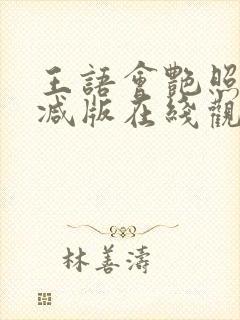 王語會艷照
減版在綫觀
林善濤